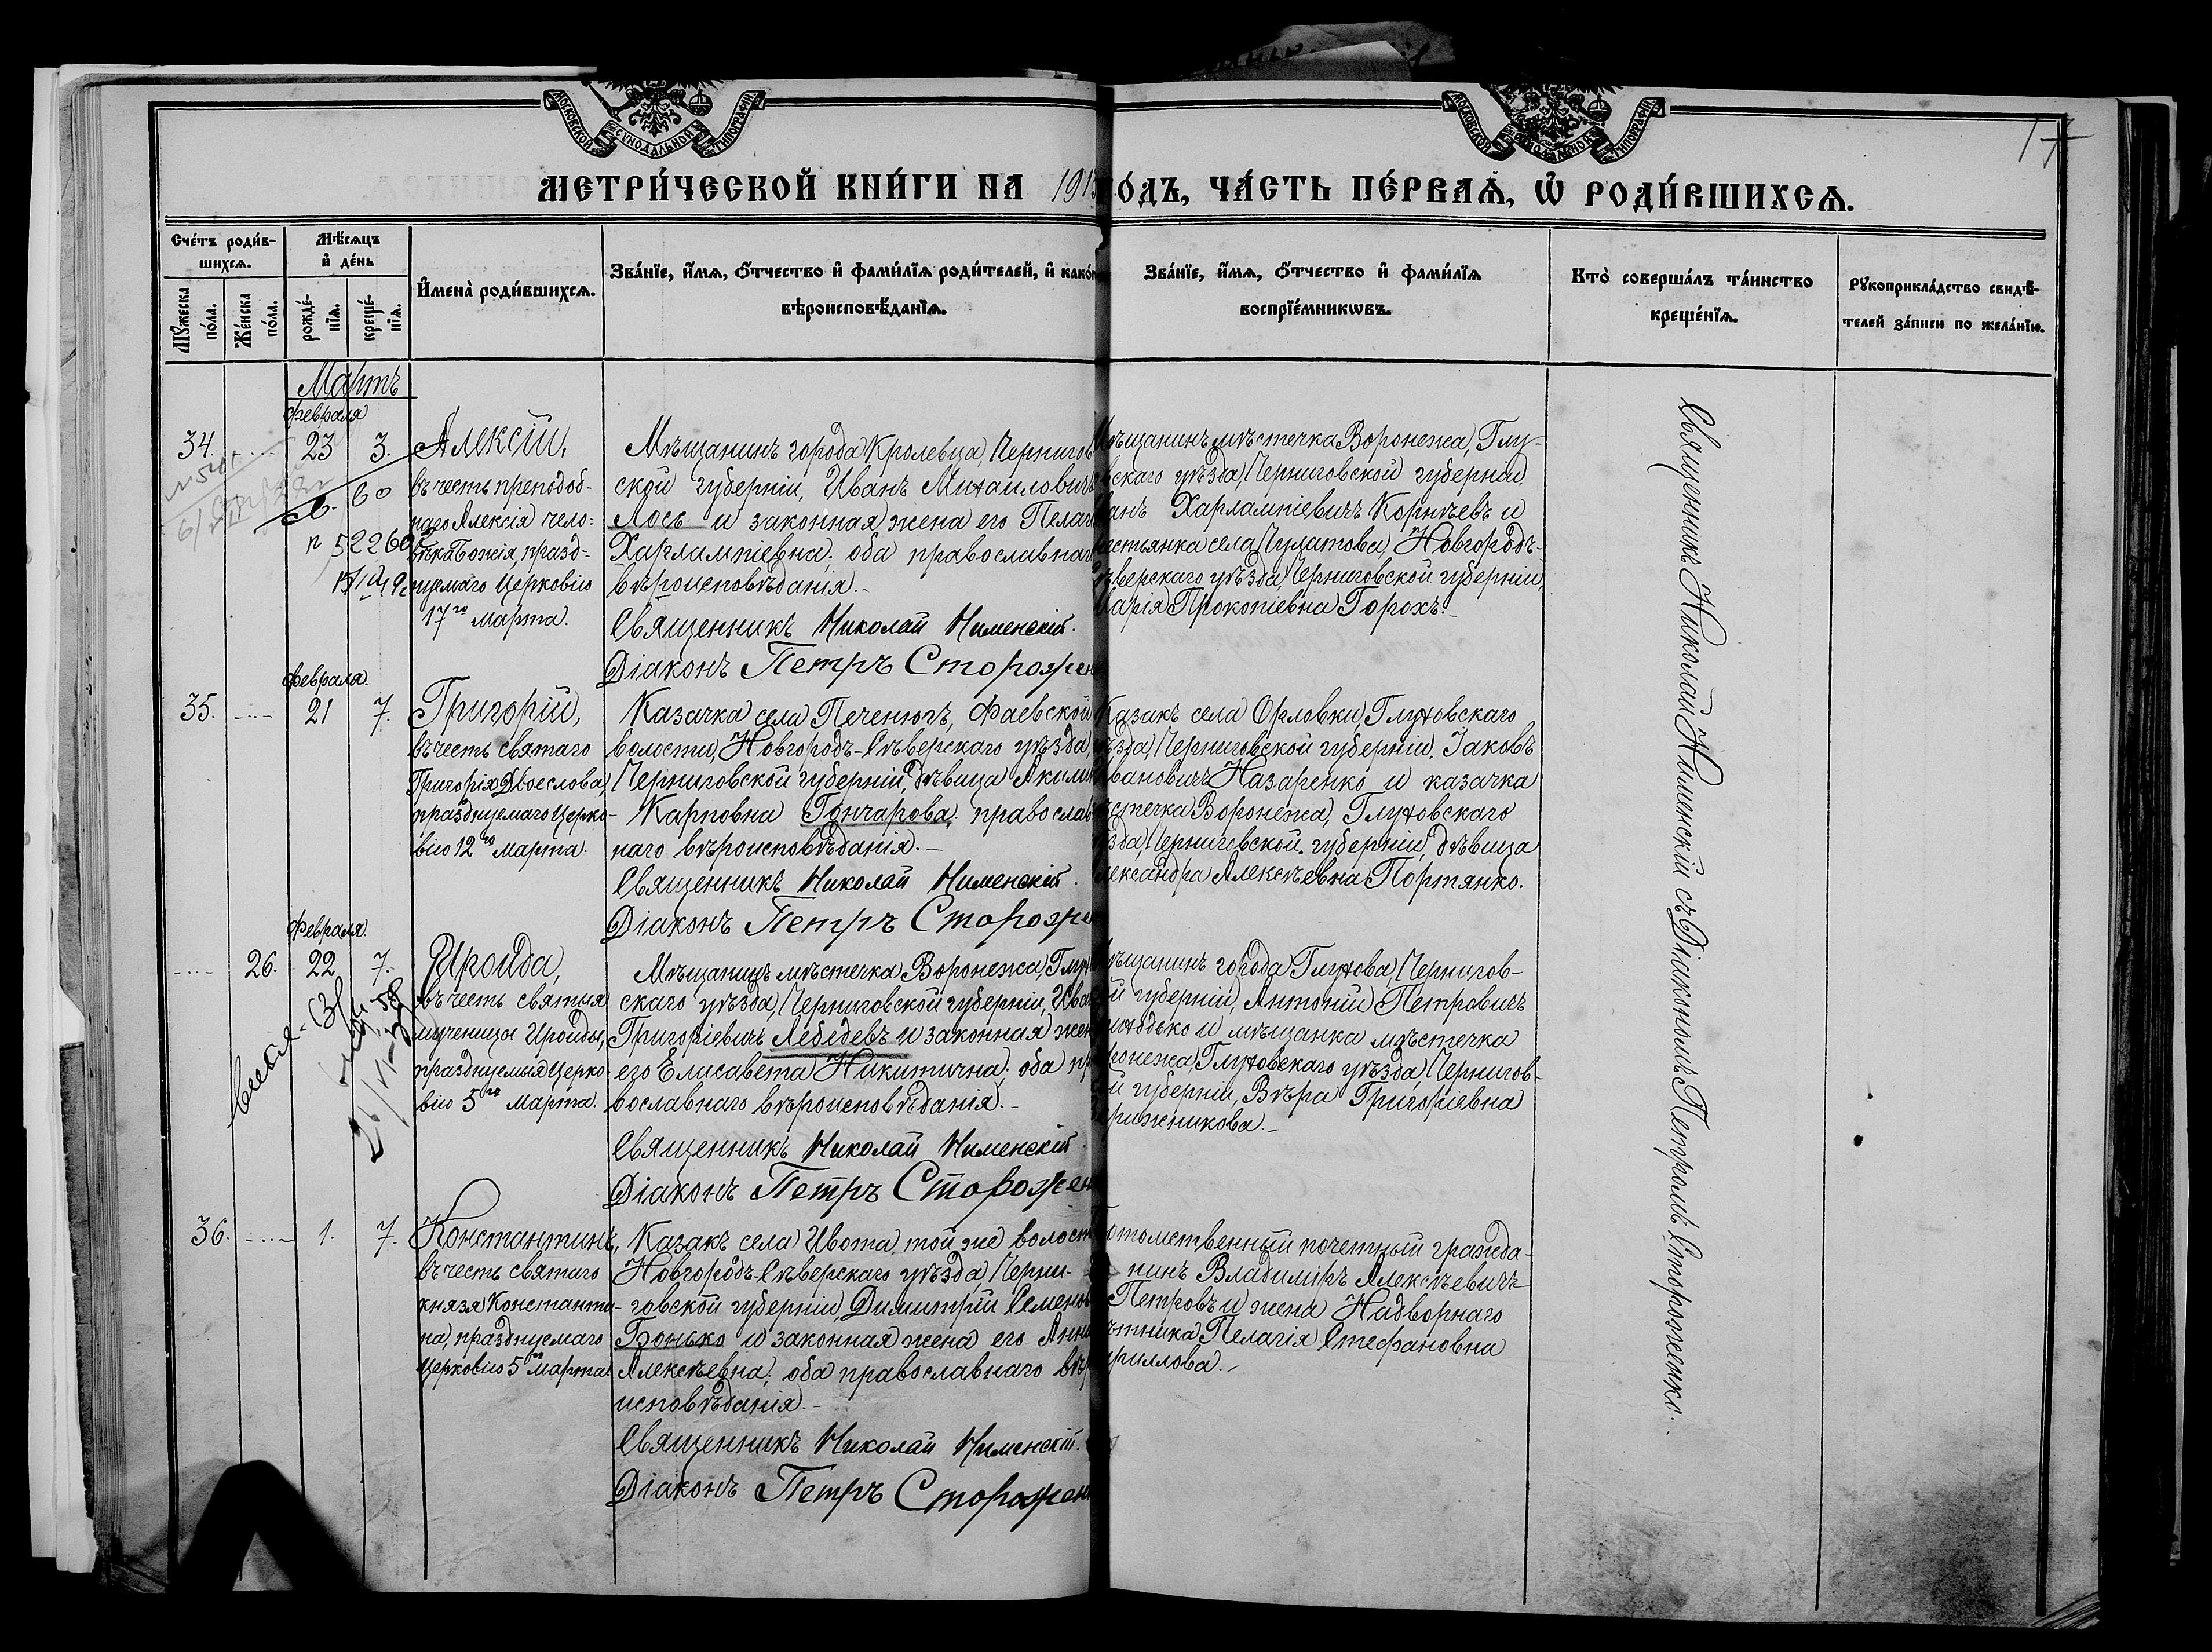 МОСКОВСКОЙ СУНОДАЛЬНОЙ ТИПОГРАФІИ
МОСКОВСКОЙ СУНОДАЛЬНОЙ ТИПОГРАФІИ
17
МЕТРИ́ЧЕСКОЙ КНИ́ГИ НА 191
ОДЪ, ЧА́СТЬ ПЕ́РВАѦ, Ѡ РОДИ́ВШИХСѦ.
Сче́тъ роди́в-
шихсѧ.
Мѣ́сѧцъ
и де́нь
Мꙋ́жеска
по́ла.
Же́нска
по́ла.
рожде́-
нїѧ.
креще́-
нїѧ.
Имена̀ роди́вшихсѧ.
Зва́нїе, и́мѧ, о́тчество и фами́лїѧ роди́телей, и како́
вѣроисповѣ́данїѧ.
Зва́нїе, и́мѧ, о́тчество и фами́лїѧ
воспрїе́мникѡвъ.
Кто̀ соверша́лъ та́инство
креще́нїѧ.
Рꙋкоприкла́дство свидѣ́-
телей за́писи по жела́нїю.
Мартъ
февраля
34. 23 3. Алексій,
въ честь преподоб-
наго Алексія чело-
вѣка Божія, празд-
нуемаго Церковію
17го Марта.
Мѣщанинъ города Кролевца, Чернигов
ской губерніи, Иванъ Михаиловичъ
Лось и законная жена его Пелаг
Харлампіевна; оба православнаг
вѣроисповѣданія.-
Священникъ Николай Нименскій.
Діаконъ Петръ Стороже
Мѣщанинъ мѣстечка Воронежа, Глу-
вскаго уѣзда, Черниговской губерніи,
ванъ Харлампіевичъ Корнѣевъ и
естьянка села Чулатова, Новгородъ-
ѣверскаго уѣзда Черниговской губерніи,
арія Прокопіевна Горохъ.-
февраля.
35. 21 7. Григорій,
въ честь святаго
Григорія Двоеслова,
празднуемаго Церко-
вію 12го Марта.
Казачка села Печенюгъ, Фаевской
волости, Новгородъ-Сѣверскаго уѣзда,
Черниговской губерніи, дѣвица Акили
Карповна Гончарова; православ
наго вѣроисповѣданія.-
Священникъ Николай Нименскій.
Діаконъ Петръ Стороже
Казакъ села Орловки, Глуховскаго
ѣзда, Черниговской губерніи, Іаковъ
вановичъ Назаренко и казачка
стечка Воронежа, Глуховскаго
зда, Черниговской губерніи, дѣвица
лександра Алексѣевна Портянко.
Февраля.
26. 22 7. Ироида,
въ честь святыя
мученицы Ироиды,
празднуемыя Церко-
вію 5го Марта.
Мѣщанинъ мѣстечка Воронежа, Глух
скаго уѣзда, Черниговской губерніи, Ива
Григоріевичъ Лебедевъ и законная жен
его Елисавета Никитична; оба пр
вославнаго вѣроисповѣданія.-
Священникъ Николай Нименскій.
Діаконъ Петръ Сторожен
ѣщанинъ города Глухова, Чернигов-
й губерніи, Антоній Петровичъ
и мѣщанка мѣстечка
ронежа, Глуховскаго уѣзда, Чернигов-
й губерніи, Вѣра Григоріевна
36. 1. 7. Константинъ,
въ честь святаго
князя Константи-
на, празднуемаго
Церковію 5го Марта.
Казакъ села Ивота, той же волост
Новгородъ-Сѣверскаго уѣзда, Черни-
говской губерніи, Димитрій Семенов
Бонько и законная жена его Анн
Алексѣевна; оба православнаго вѣр
исповѣданія.-
Священникъ Николай Нименскій.
Діаконъ Петръ Сторожен
отомственный почетный гражда-
нинъ Владиміръ Алексѣевичъ
Петровъ и жена Надворнаго
ѣтника Пелагія Стефановна
риллова.-
Священникъ Николай Нименскій съ Діакономъ Петромъ Стороженко.